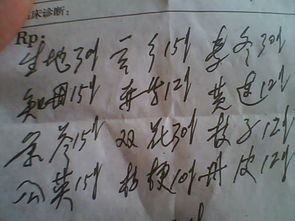 床诊断:
Rp:
生地30g 15g 麦冬30g
知母15g 12g 黄连12g
15g 双花30g 枝子12g
公英15g 桔梗10g 丹皮12g